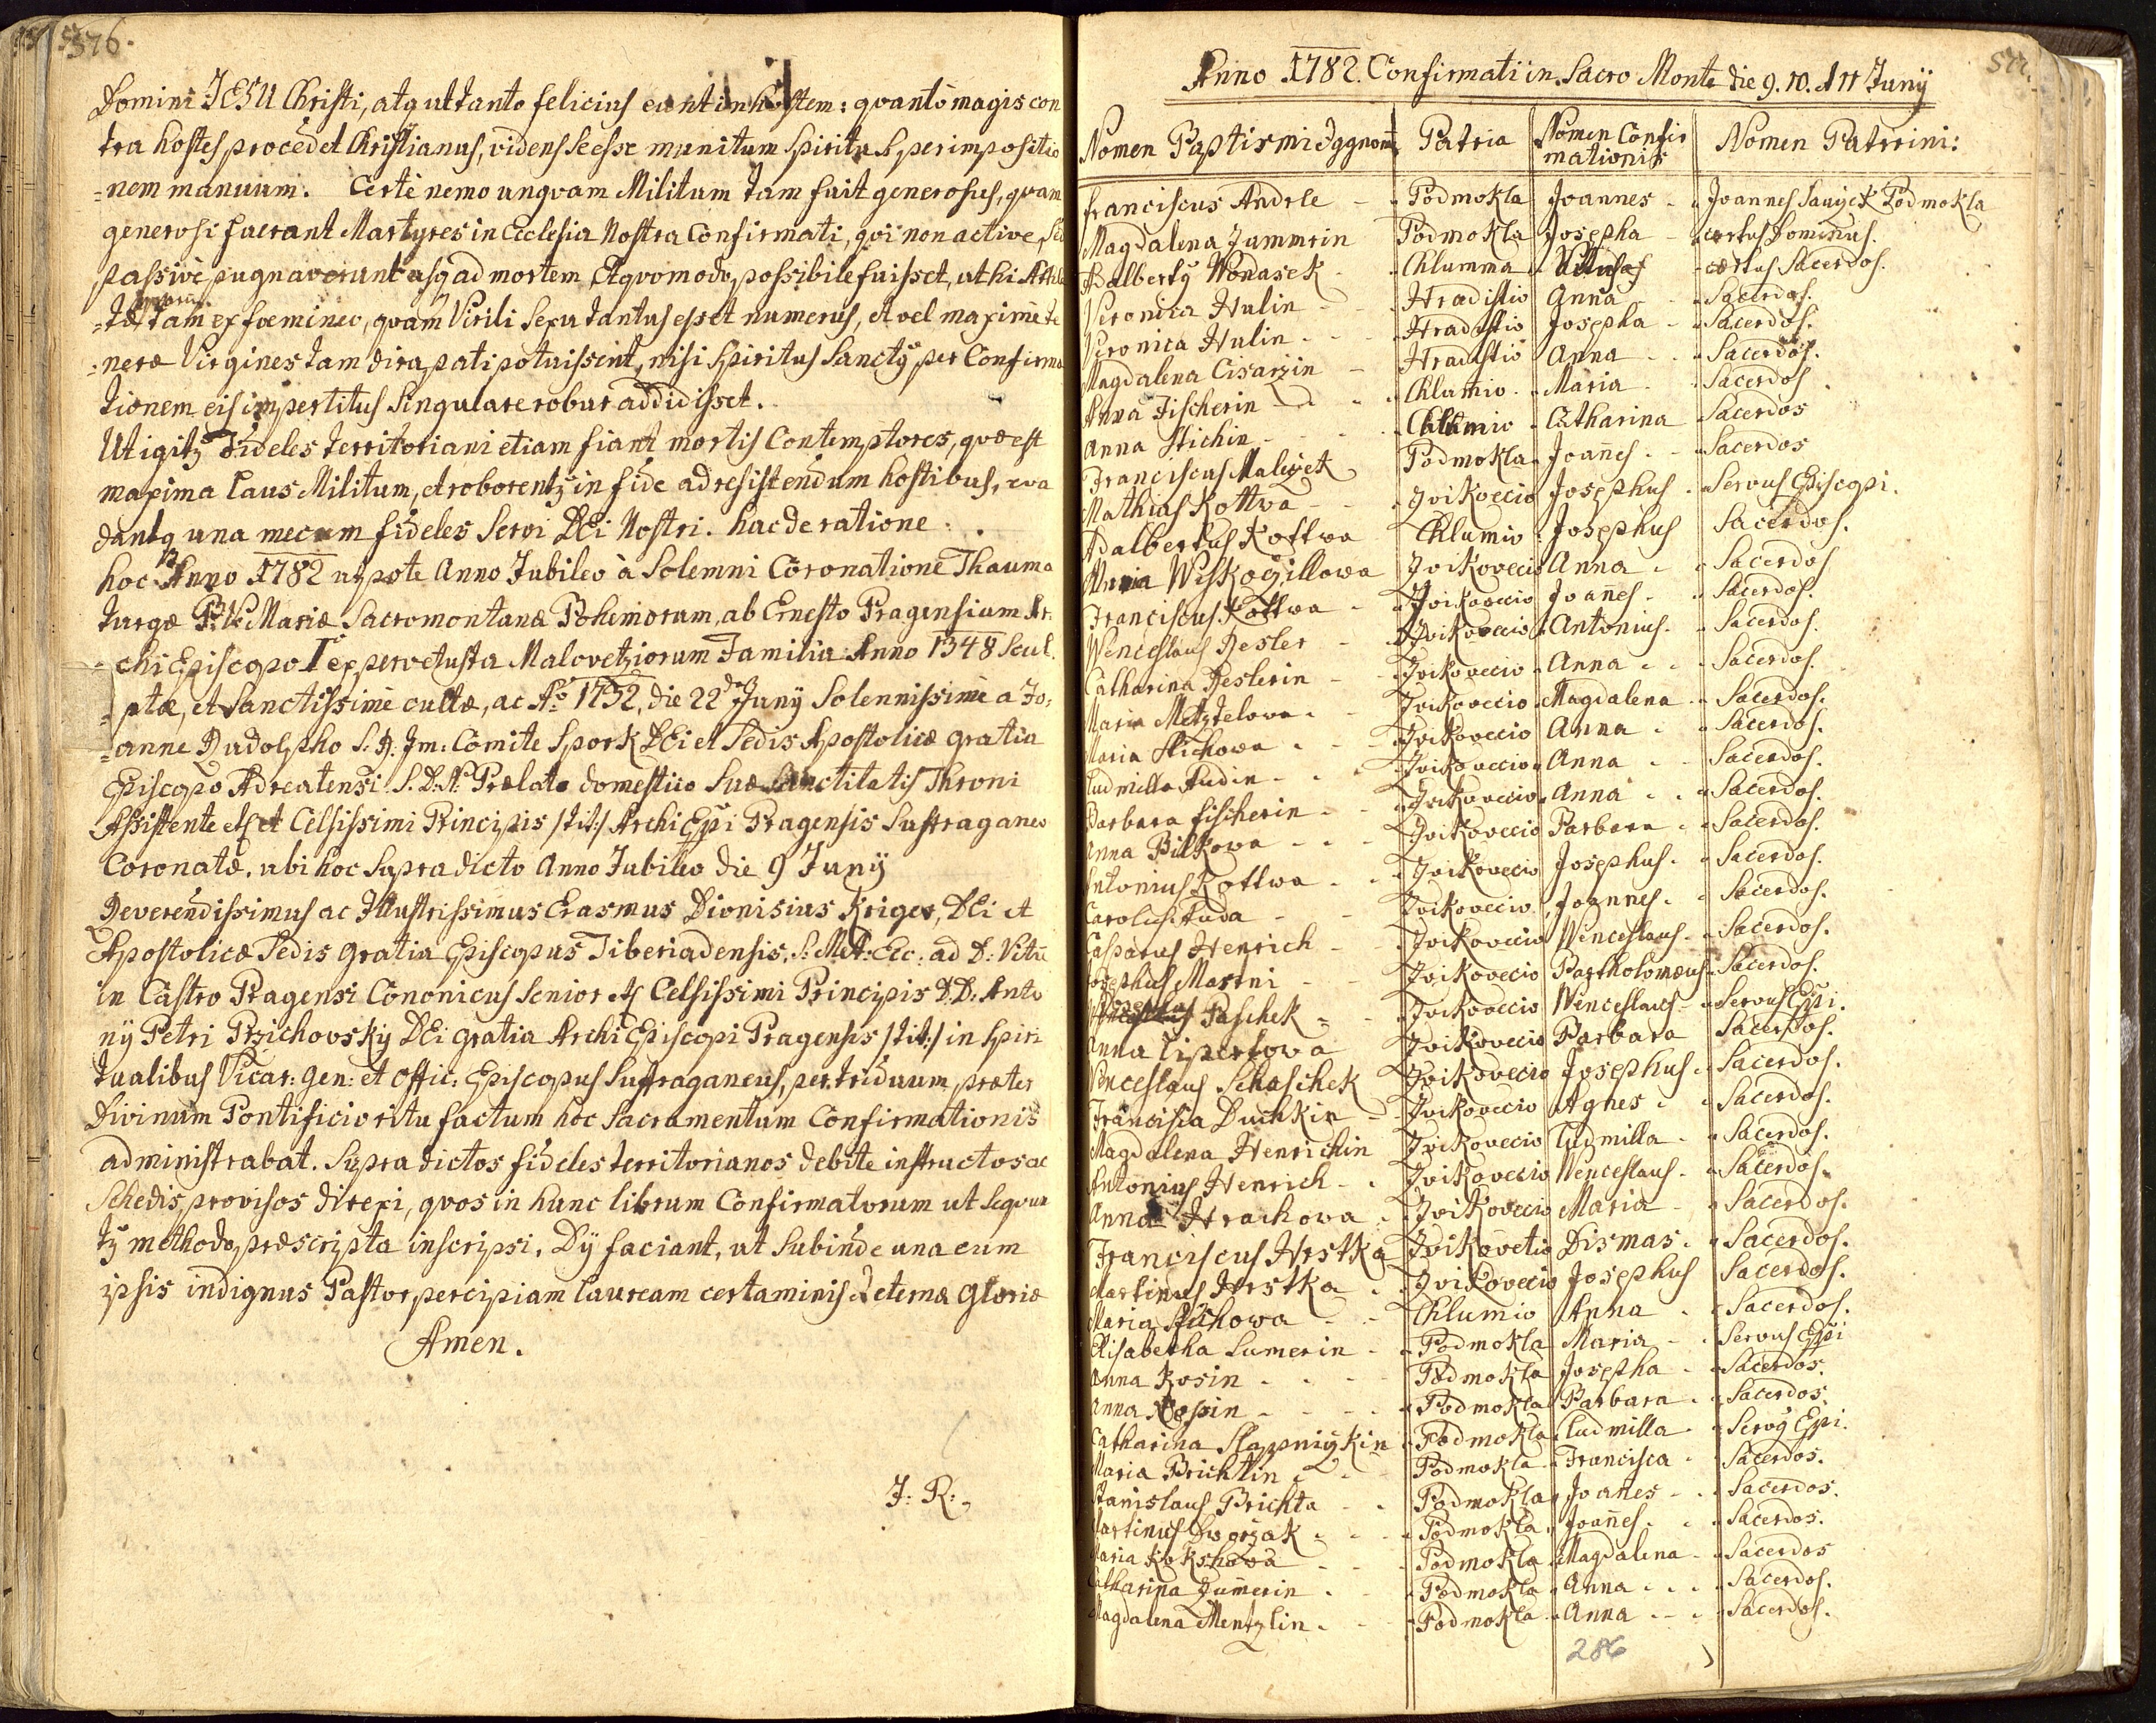 576.
Domini JESU Christi, atq ut tanto felicius eant in hostem: qvantò magis con
tra hostes procedet Christianus, videns se esse munitum Spiritu S. per impositio
=nem manuum. Certè nemo unqvam Militum tam fuit generosus, qvam
generosi fuerant Martyres in Ecclesia Nostra Confirmati, qvi non active, sed
passivè pugnaverunt usq ad mortem. Et qvomodo possibile fuisset, ut hi Athle
=tæ, qvorum tam ex fœmineo, qvàm Virili Sexu tantus esset numerus, et vel maximè te
=neræ Virgines tam dira pati potuissent, nisi Spiritus Sanctus per Confirma
tionem eis impertitus Singulare robur addidisset.
Ut igitur Fideles territoriani etiam fiant mortis Contemptores, qvæ est
maxima Laus Militum, et roborentur in fide ad resistendum hostibus, eva
dantq una mecum fideles Servi DEi Nostri. hac de ratione
hoc Anno 1782 utpote Anno Jubileo à Solemni Coronatione Thauma
turgæ B.V. Mariæ Sacromontanæ Bohemorum, ab Ernesto Pragensium Ar
chiEpiscopo I ex pervetusta Malovetziorum Familia Anno 1348 Scul
ptæ, et Sanctissimè cultæ, ac Ao 1732, die 22 Junÿ Solennissimè a Jo
=anne Rudolpho S. R. Im: Comite Spork DEi et Sedis Apostolicæ gratia
Episcopo Adreatensi S.D.N. Prælato domestico Suæ Sanctitatis Throni
Assistente etc et Celsissimi Principis /tit:/ ArchiEpi Pragensis Suffraganeo
Coronatæ. ubi hoc Supradicto Anno Jubileo die 9 Junÿ
Reverendissimus ac Illustrissimus Erasmus Dionisius Kriger, DEi et
Apostolicæ Sedis gratia Episcopus Tiberiadensis, S: Met: Ecc: ad D: Vitū
in Castro Pragensi Cononicus Senior etc Celsissimi Principis D.D. Anto
nÿ Petri Przichovskÿ DEi gratia ArchiEpiscopi Pragensis /tit:/ in Spiri
tualibus Vicar: gen: et Offic: Episcopus Suffraganeus, per triduum præter
Divinum Pontificio ritu factum hoc Sacramentum Confirmationis
administrabat. Supra dictos fideles territorianos debite instructos ac
Schedis provisos direxi, qvos in hunc librum Confirmatorum ut Seqvun
tur methodo præscripta inscripsi. Dÿ faciant, ut Subinde una cum
ipsis indignus Pastor percipiam lauream certaminis æternæ gloriæ
Amen.
J: R:
577.
Anno 1782. Confirmati in Sacro Monte die 9. 10. et 11 Junÿ
Nomen Baptismi Patria Nomen Confir mationis Nomen Patrini:
Franciscus Andrle Podmokla Joannes Joannes Podmokla
Magdalena Jummrin Podmokla Josepha certus Dominus.
Adalbertÿ Wondasek Chlumma certus Sacerdos.
Veronica Hulin Hradistio Anna Sacerdos.
Veronica Hulin Hradistio Josepha Sacerdos.
Magdalena Cisarzin Hradistio Anna Sacerdos.
Anna Fischerin Chlumio Maria Sacerdos.
Anna Stichin Chlumio Catharina Sacerdos
Franciscus Malecžek Podmokla Joañes Sacerdos
Mathias Kottwa Zvikovecio Josephus Servus Episcopi.
Adalbertus Kottwa Chlumio Josephus Sacerdos.
Anna Wiskoczillowa Zvikovecio Anna Sacerdos
Franciscus Kottwa Zvikovecio Joañes Sacerdos.
Wenceslaus Resler Zvikovecio Antonius Sacerdos.
Catharina Reslerin Zvikovecio Anna Sacerdos.
Maria Metztelowa Zvikovecio Magdalena Sacerdos.
Maria Stichowa Zvikovecio Anna Sacerdos.
Ludmilla Fudin Zvikovecio Anna Sacerdos.
Barbara Fischerin Zvikovecio Anna Sacerdos.
Anna Bilkowa Zvikovecio Barbara Sacerdos.
Antonius Kottwa Zvikovecio Josephus Sacerdos.
Carolus Fuda Zvikovecio Joannes Sacerdos.
Casparus Henrich Zvikovecio Wenceslaus Sacerdos.
Josephus Martni Zvikovecio Bartholomæus Sacerdos.
Josephus Paschek Zvikovecio Wenceslaus Servus Epi.
Anna Lipertowa Zvikovecio Barbara Sacerdos.
Venceslaus Schaschek Zvikovecio Josephus Sacerdos.
Francisca Duchkin Zvikovecio Agnes Sacerdos.
Magdalena Henrichin Zvikovecio Ludmilla Sacerdos.
Antonius Henrich Zvikovecio Wenceslaus Sacerdos.
Anna Hrachowa Zvikovecio Maria Sacerdos.
Franciscus Hrstka Zvikovetio Dismas Sacerdos.
Martinus Hrstka Zvikovecio Josephus Sacerdos.
Maria Stichowa Chlumio Anna Sacerdos.
Elisabetha Sumerin Podmokla Maria Servus Epi
Anna Kosin Podmokla Josepha Sacerdos.
Anna Podmokla Barbara Sacerdos.
Catharina Podmokla Ludmilla Servÿ Epi.
Maria Brichtin Podmokla Francisca Sacerdos.
Stanislaus Brichta Podmokla Joañes Sacerdos.
Martinus Dworžak Podmokla Joañes Sacerdos.
Maria Kokschowa Podmokla Magdalena Sacerdos
Catharina Jumerin Podmokla Anna Sacerdos.
Magdalena Mentzlin Podmokla Anna Sacerdos.
286